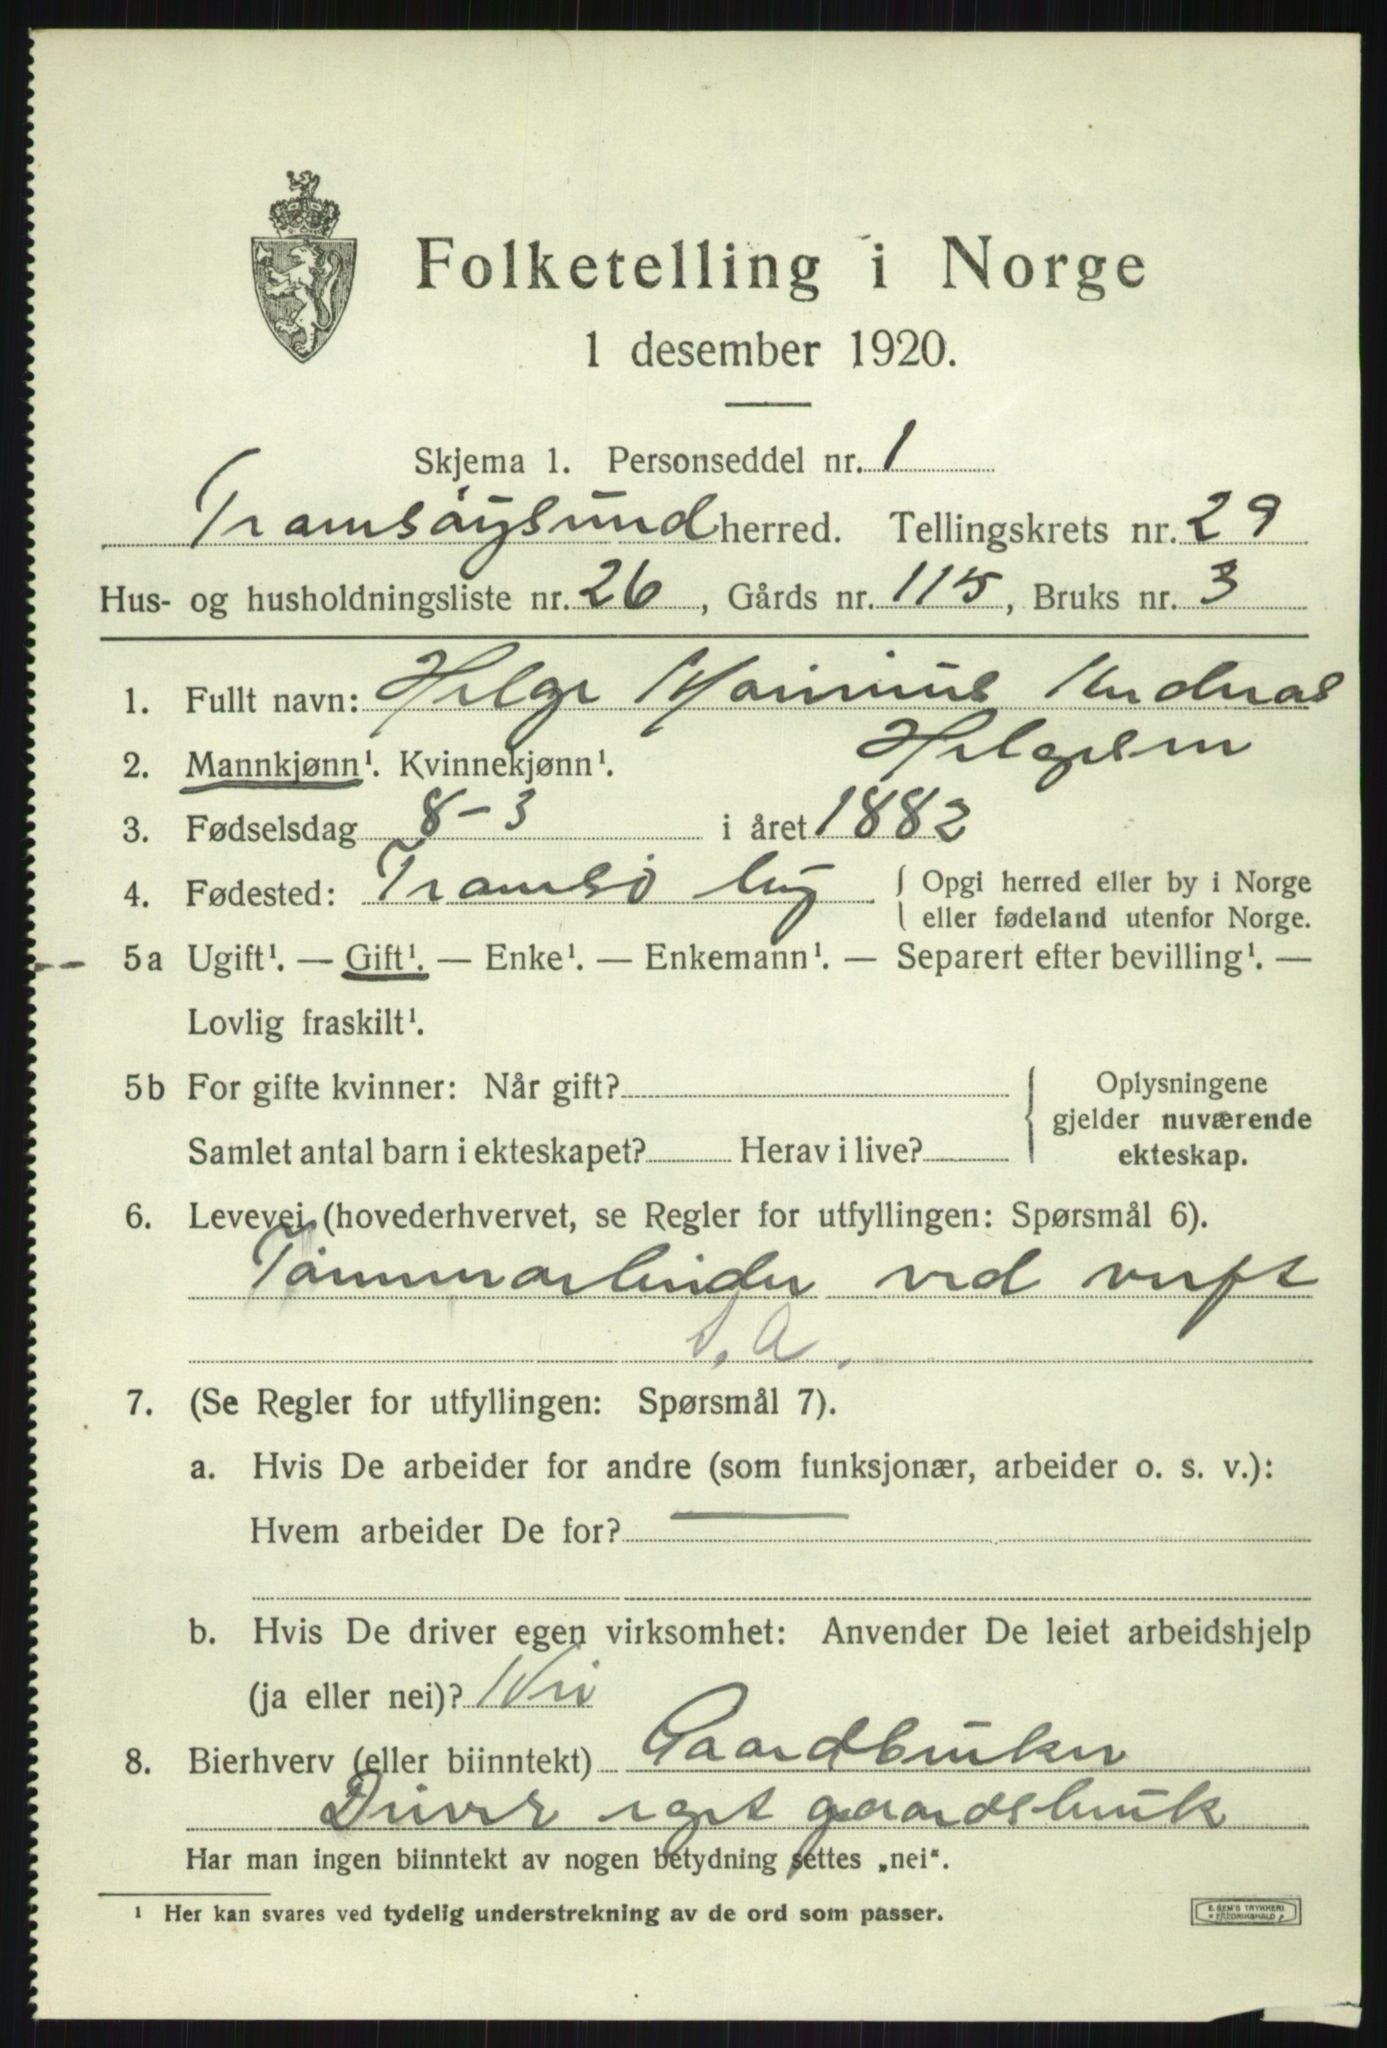 Folketelling i Norge
1 desember 1920.
Skjema 1. Personseddel nr. 1
Tromsøysund herred. Tellingskrets nr. 29
Hus- og husholdningsliste nr. 26, Gårds nr. 115, Bruks nr. 3
1. Fullt navn: Helge Marinius Andreas
Helgesen
2. Mannkjønn¹. Kvinnekjønn¹.
3. Fødselsdag 8-3 i året 1882
4. Fødested: Tromsø by { Opgi herred eller by i Norge
eller fødeland utenfor Norge.
5a Ugift¹. — Gift¹. — Enke¹. — Enkemann¹. — Separert efter bevilling¹. —
Lovlig fraskilt¹.
5b For gifte kvinner: Når gift?
Samlet antal barn i ekteskapet? Herav i live?
Oplysningene
gjelder nuværende
ekteskap.
6. Levevei (hovederhvervet, se Regler for utfyllingen: Spørsmål 6).
Tømmerarbeider ved verft
s.a.
7. (Se Regler for utfyllingen: Spørsmål 7).
a. Hvis De arbeider for andre (som funksjonær, arbeider o. s. v.):
Hvem arbeider De for? —
b. Hvis De driver egen virksomhet: Anvender De leiet arbeidshjelp
(ja eller nei)? Nei
8. Bierhverv (eller biinntekt) Gaardbruker
Driver eget gaardsbruk
Har man ingen biinntekt av nogen betydning settes „nei“.
¹ Her kan svares ved tydelig understrekning av de ord som passer.
E. SEM'S TRYKKERI
FREDRIKSHALD